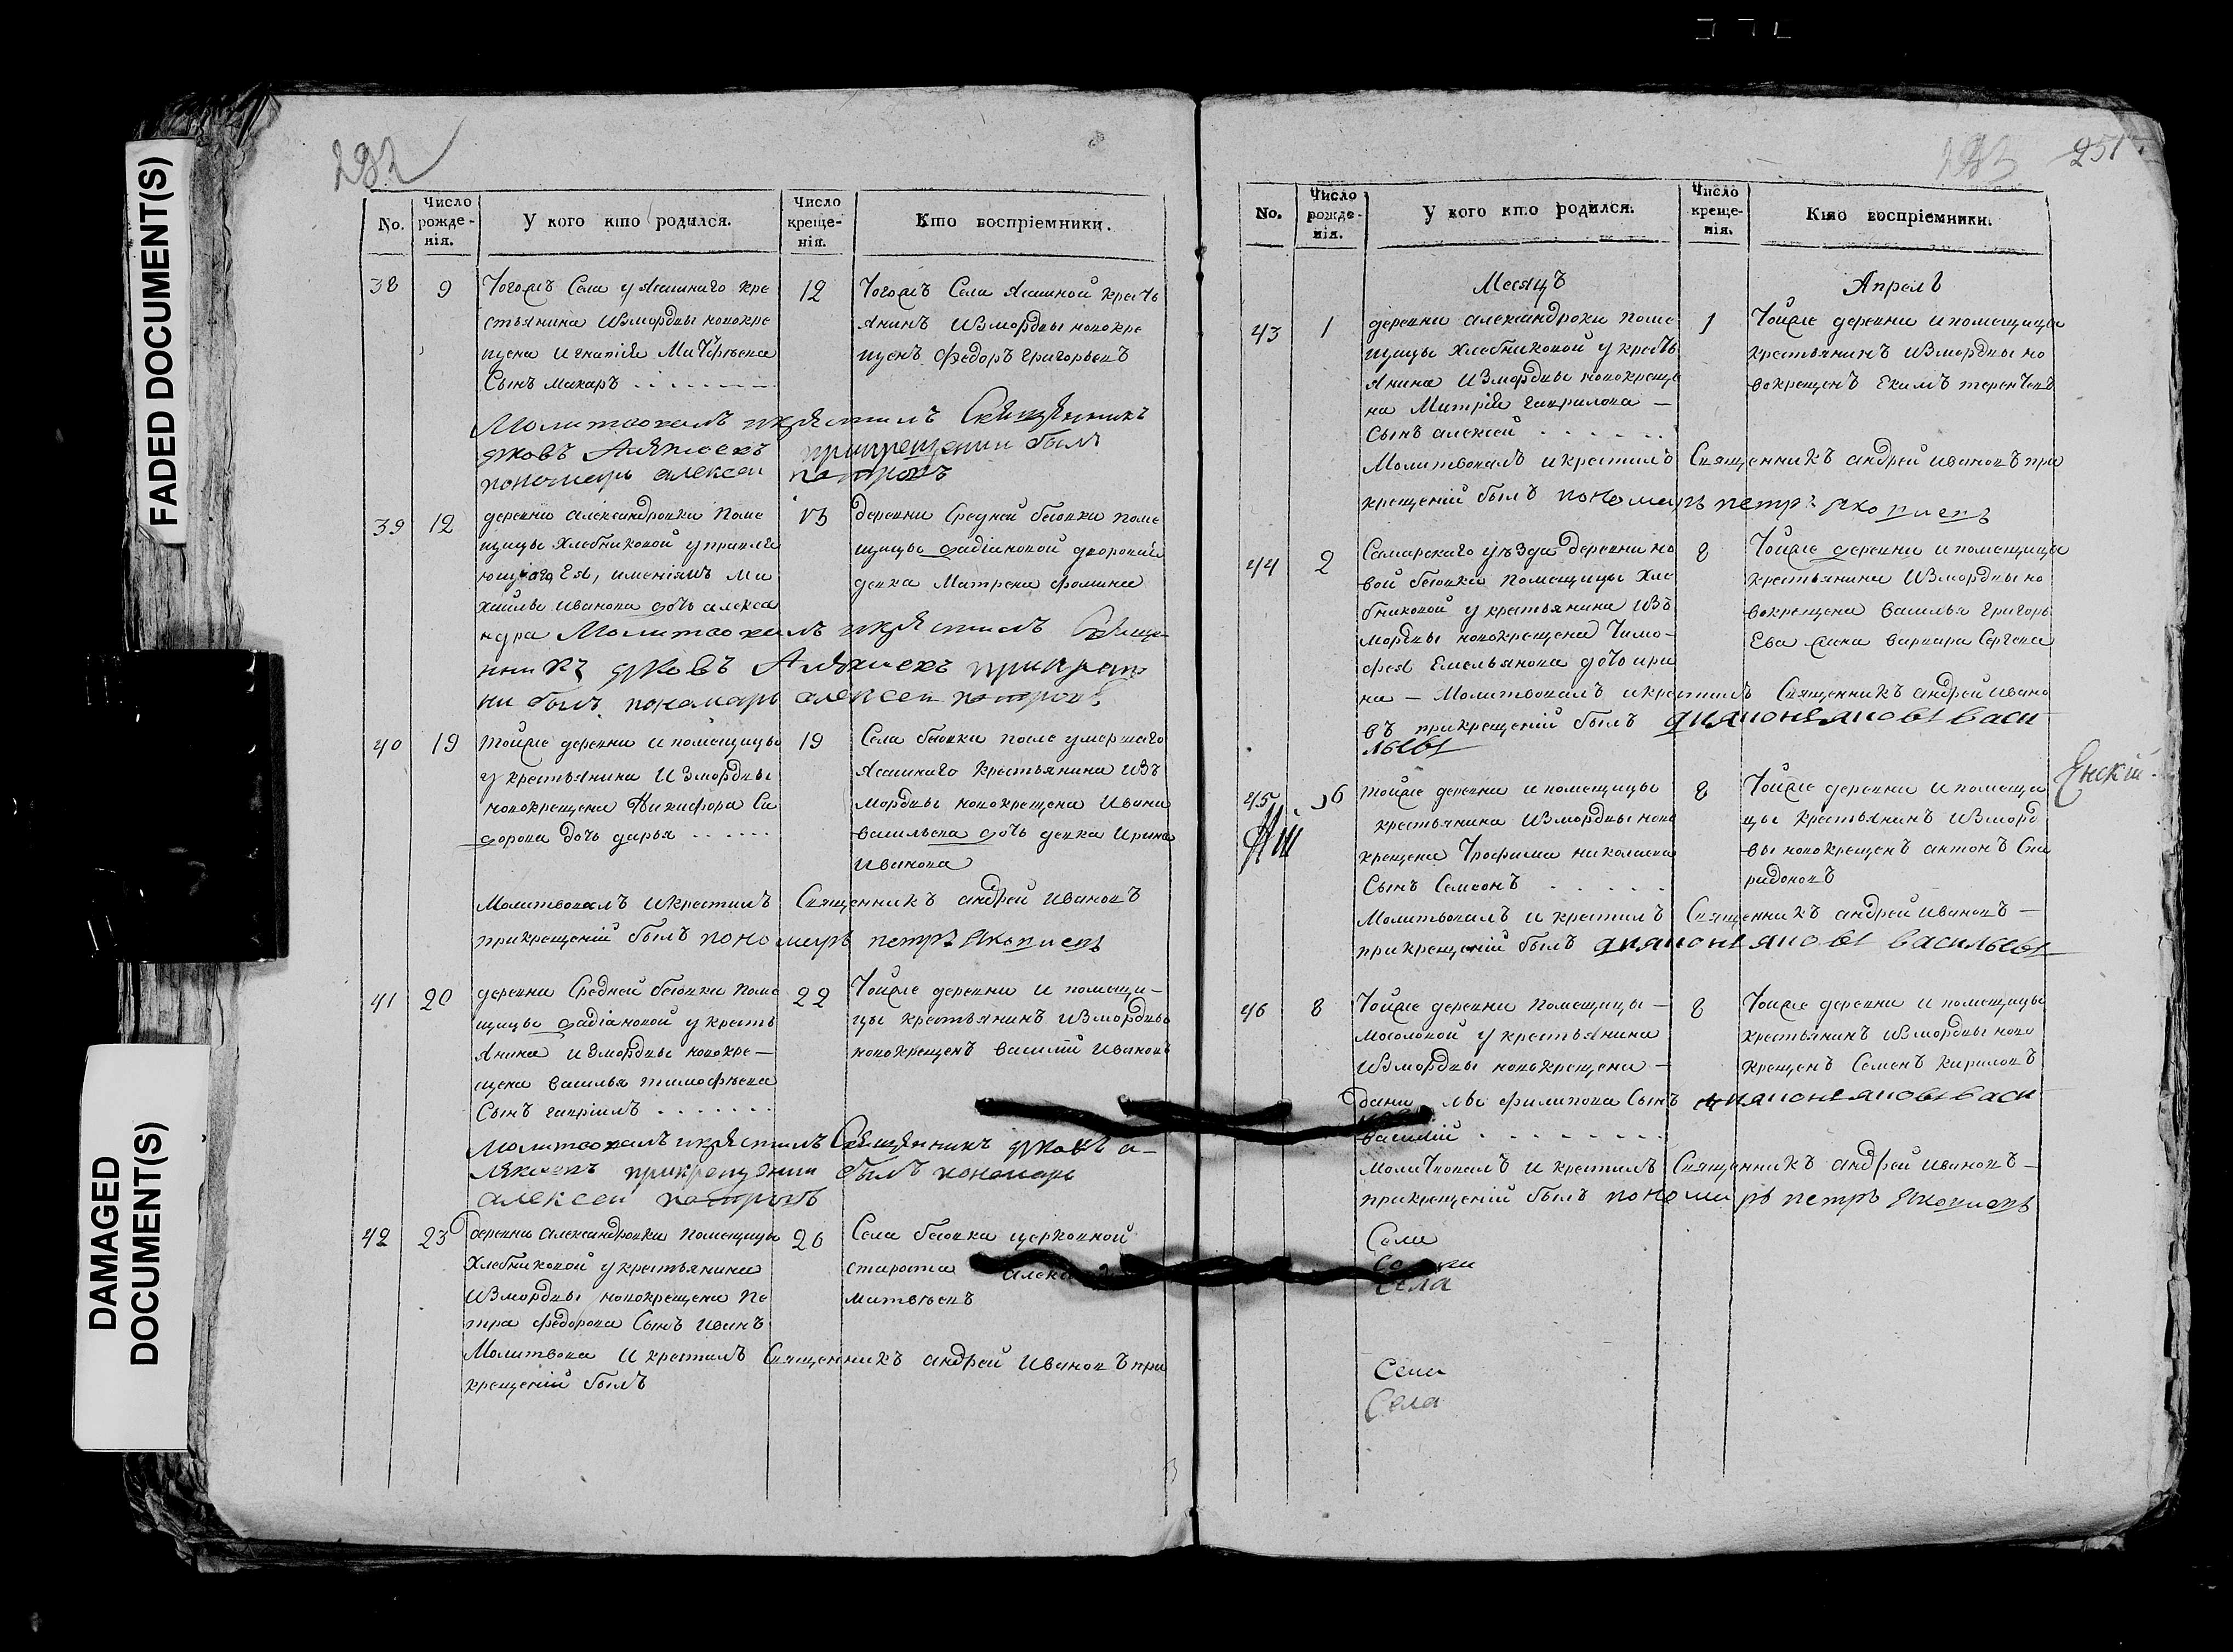 FADED DOCUMENT(S)
DAMAGED
DOCUMENT(S)
282
No.
Число
рожде-
нія.
У кого кто родился.
Число
креще-
нія.
Кто воспріемники.
38 9 12
Тогожъ Села у Ясашнаго кре
стьянина Измордвы новокре
щена Игнатія Матвѣева
Сынъ Макаръ
Тогожъ Села Ясашной кресть
янинъ Измордвы новокре
щенъ Федоръ Григорьевъ
Молитвовалъ икрестилъ Священникъ
Яковъ Алексеевъ прикрещении былъ
пономарь алексеи петровъ
39 12 13
деревни александровки поме
щицы Хлебниковой управля
ющаго Ея, имениямъ Ми
хайлы Иванова дочь алекса
ндра Молитвовалъ икрестилъ Свяще-
нникъ Яковъ Алексеевъ прикреще
ни былъ пономарь алексеи петровъ
деревни Средней бьовки поме
щицы дворовая
девка Матрена Фомина
40 19 19
тойже деревни и помещицы
у крестьянина Измордвы
новокрещена Никифора Си
дорова дочь дарья
Села после умершаго
Ясашнаго крестьянина изъ
мордвы новокрещена Ивана
васильева дочь девка Ирина
Иванова
Молитвовалъ икрестилъ Священникъ андрей Ивановъ
прикрещеній былъ пономаръ петръ Яковлевъ
41 20 22
деревни Средней поме
щицы у кресть
янина измордвы новокре-
щена василья тимофѣева
Сынъ гавріилъ
Тойже деревни и помещи-
цы крестьянинъ измордвы
новокрещенъ василій Ивановъ
Молитвовалъ икрестилъ Священникъ Яковъ а-
лексеевъ прикрещении былъ пономарь
алексеи петровъ
42 23 26
деревни александровки помещицы
Хлебниковой у крестьянина
Измордвы новокрещена Пе
тра Федорова Сынъ Иванъ
Села церковной
староста
матвѣевъ
Молитвова И крестилъ Священникъ андрей Ивановъ при
крещеній былъ
283 251
No.
Число
рожде-
нія.
У кого кто родился.
Число
креще-
нія.
Кто воспріемники.
Месяцъ Апрель
43 1 1
деревни александровки поме
щицы Хлебниковой у кресть
янина Измордвы новокреще
на Митрія гаврилова —
Сынъ алексей
Тойже деревни и помещицы
крестьянинъ измордвы но
вокрещенъ Екимъ терентьевъ
Молитвовалъ икрестилъ Священникъ андрей ивановъ при
крещеній былъ пономаръ петръ Яковлевъ
44 2 8
Самарскаго уѣзда деревни но
вой помещицы Хле
бниковой у крестьянина изъ
мордвы новокрещена Тимо-
фея Емельянова дочь ири
на — Молитвовалъ икрестилъ Священникъ андрей Ивано
въ прикрещеній былъ
Тойже деревни и помещицы
крестьянина Измордвы но
вокрещена василья григорь
Ева жена варвара Сергеева
45 6 8
тойже деревни и помещицы
крестьянина Измордвы ново
крещена Трофима николаева
Сынъ Самсонъ
Тойже деревни и помещи
цы крестьянинъ измордв
вы новокрещенъ антонъ Спи
ридоновъ
Молитвовалъ и крестилъ Священникъ андрей ивановъ —
прикрещеній былъ
46 8 8
Тойже деревни помещицы —
Мосоловой у крестьянина
Измордвы новокрещена —
дани лы филипова Сынъ
василій
Тойже деревни и помещицы
крестьянинъ измордвы ново
крещенъ Семенъ кириловъ
Молитвовалъ и крестилъ Священникъ андрей ивановъ —
прикрещеній былъ пономаръ петръ Яковлевъ
Села
Села
Села
Села